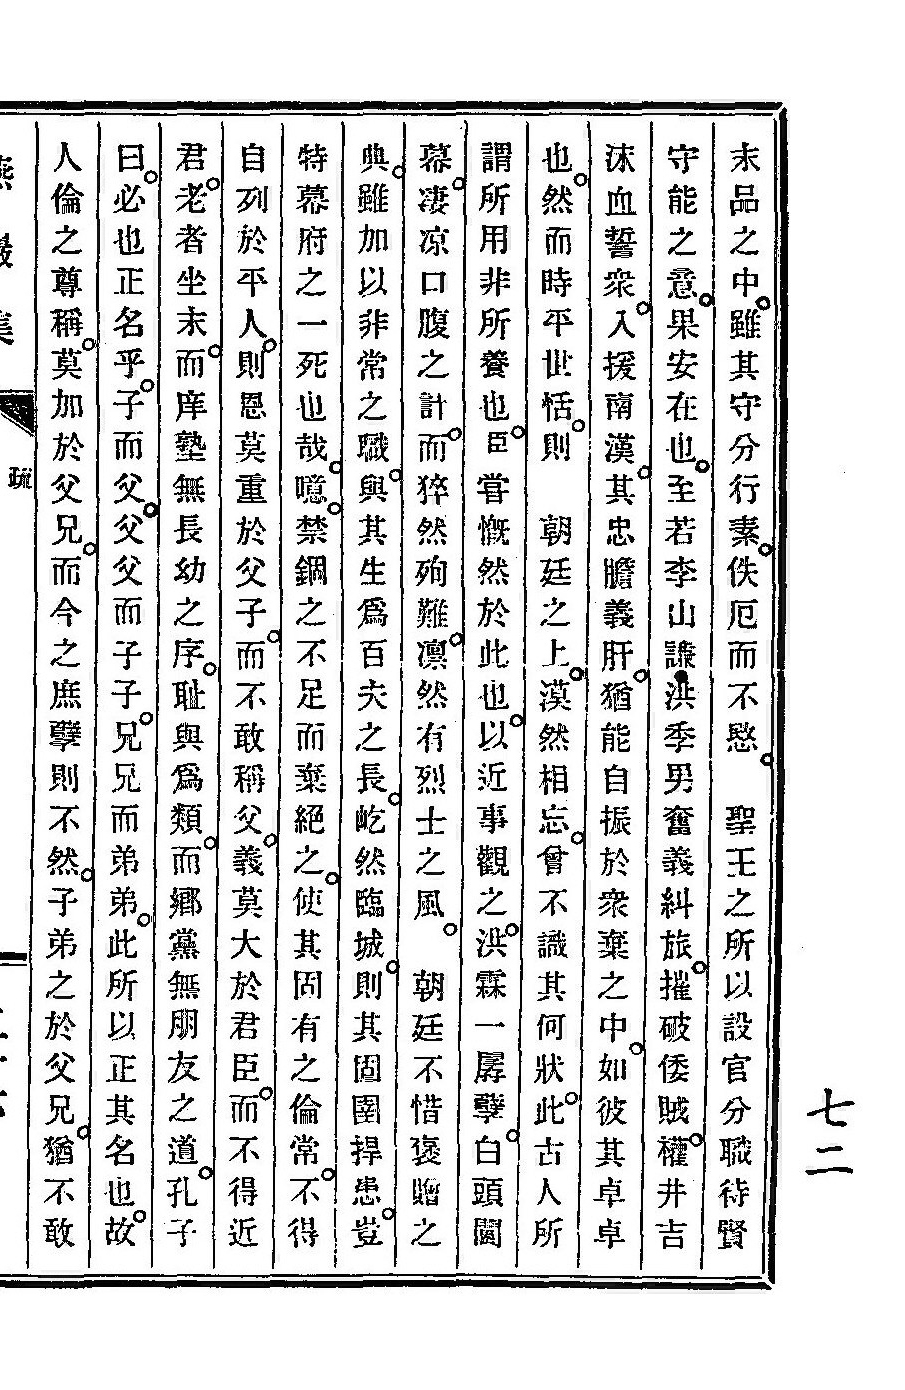 末品之中。雖其守分行素。佚厄而不愍。 聖王之所以設官分職待賢
守能之意。果安在也。至若李山謙●洪季男奮義糾旅。摧破倭賊。權井吉
沫血誓衆。入援南漢。其忠膽義肝。猶能自振於衆棄之中。如彼其卓卓
也。然而時平世恬。則 朝廷之上。漠然相忘。曾不識其何狀。此古人所
謂所用非所養也。臣嘗慨然於此也。以近事觀之。洪霖一孱孽。白頭闒
幕。凄凉口腹之計。而猝然殉難。凛然有烈士之風。 朝廷不惜褒贈之
典。雖加以非常之職。與其生爲百夫之長。屹然臨城。則其固圉捍患。豈
特幕府之一死也哉。噫。禁錮之不足而棄絕之。使其固有之倫常。不得
自列於平人。則恩莫重於父子。而不敢稱父。義莫大於君臣。而不得近
君。老者坐末。而庠塾無長幼之序。耻與爲類。而鄉黨無朋友之道。孔子
曰。必也正名乎。子而父。父父而子子。兄兄而弟弟。此所以正其名也。故
人倫之尊稱。莫加於父兄。而今之庶孽則不然。子弟之於父兄。猶不敢
集
疏
七二